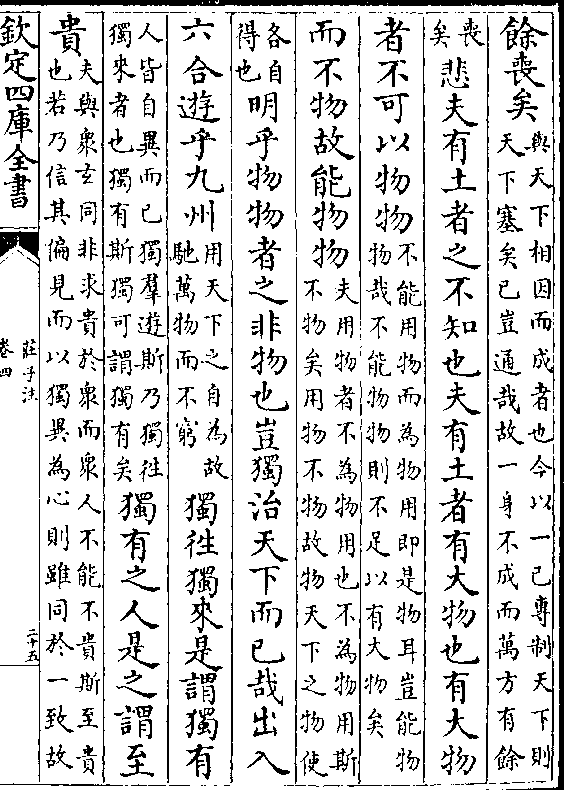 餘喪矣與天下相因而成者也今以一己專制天下則天下塞矣已豈通哉故一身不成而萬方有餘
喪矣悲夫有土者之不知也夫有土者有大物也有大物
者不可以物物不能用物而為物用即是物耳豈能物物哉不能物物則不足以有大物矣
而不物故能物物夫用物者不為物用也不為物用斯不物矣用物不物故物天下之物使
各自得也明乎物物者之非物也豈獨治天下而已哉出入
六合遊乎九州用天下之自為故馳萬物而不窮獨往獨來是謂獨有
人皆自異而已獨羣遊斯乃獨往獨來者也獨有斯獨可謂獨有矣獨有之人是之謂至
貴夫與衆玄同非求貴於衆而衆人不能不貴斯至貴也若乃信其偏見而以獨異為心則雖同於一致故
欽定四庫全書
莊子注
卷四
二十五